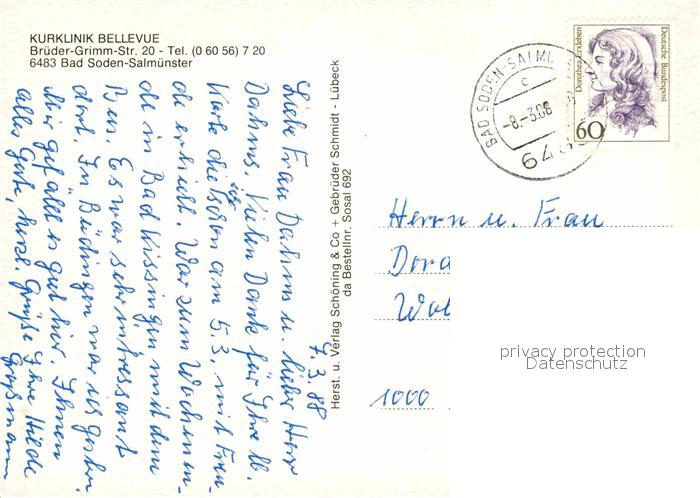 KURKLINIK BELLEVUE
Brüder-Grimm-Str. 20 - Tel. (0 60 56) 7 20
6483 Bad Soden-Salmünster
7.3.88
Liebe Frau Dahms u. lieber Herr
Dahms. Vielen Dank für Ihre lb.
Karte die schon am 5.3. mit Freu-
de erhielt. War zum Wochenen-
de in Bad Kissingen mit dem
Bus. Es war sehr intressant
dort. In Büdingen war ich gestern.
Mir gefällt es gut hier. Ihnen
alles Gute, herzl. Grüße Ihre Hilde
Herst. u. Verlag Schöning & Co + Gebrüder Schmidt - Lübeck
da Bestellnr. Sosal 692
BAD SODEN-SALM
c
-8.-3.88
Dorothea Erxleben
Deutsche Bundespost
60
Herrn u. Frau
Dora
1000
privacy protection
Datenschutz